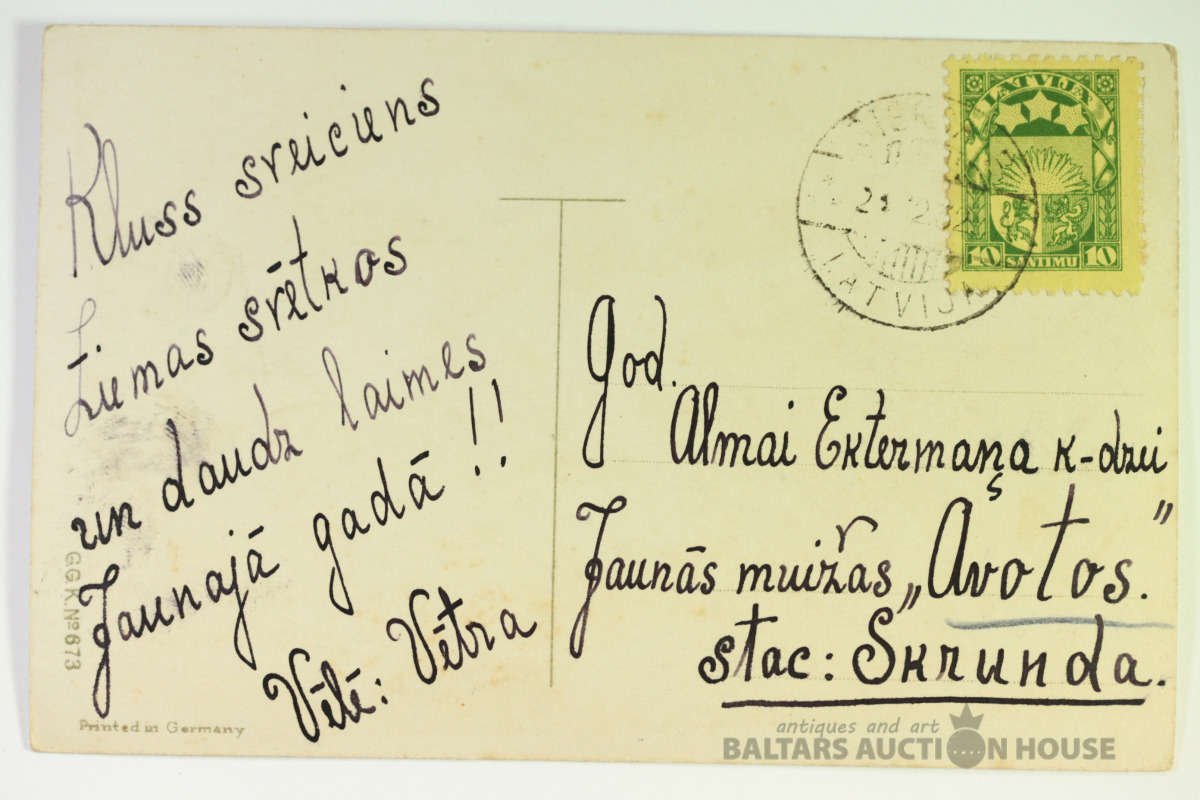 Kluss sveiciens
Ziemas svētkos
un daudz laimes
Jaunajā gadā!!
Vēlē: Vētra
G.G.K. № 673
Printed in Germany
LATVIJA
10 SANTIMU 10
LATVIJA
God.
Almai Ektermaņa k-dzei
Jaunās muižas „Avotos."
stac: Skrunda.
antiques and art
BALTARS AUCTION HOUSE